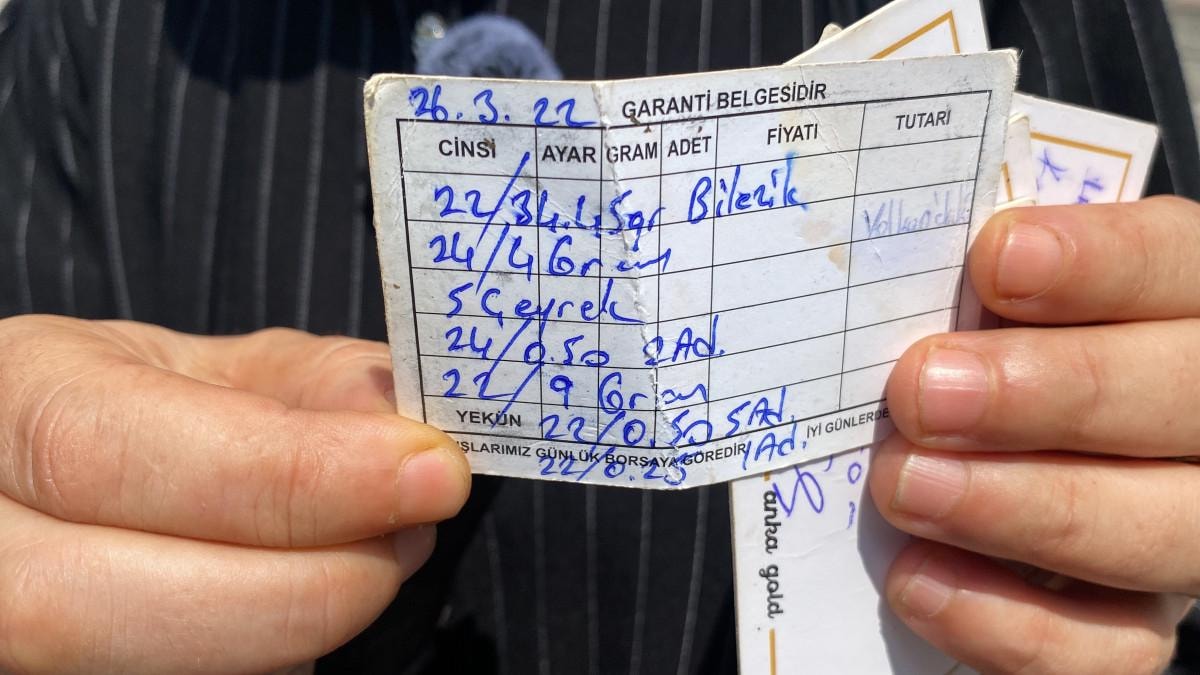 26.3.22 GARANTİ BELGESİDİR
CİNSİ AYAR GRAM ADET FİYATI TUTARI
22/34.45gr Bilezik
24/4 Gram
5 Çeyrek
24/0.50 2Ad.
22/9 Gram
YEKÜN 22/0.50 5Ad.
ŞLARIMIZ GÜNLÜK BORSAYA GÖREDİR İYİ GÜNLERDE
22/0.25 1Ad.
anka gold